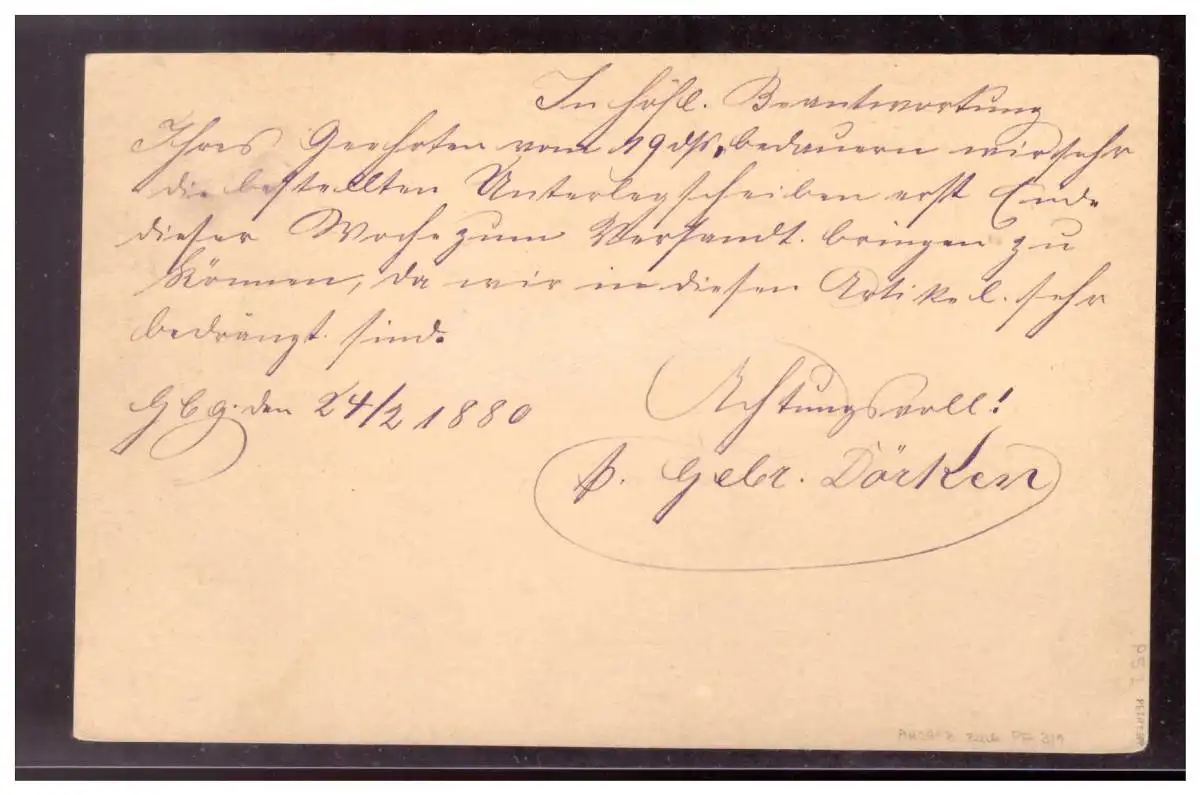 In höfl. Beantwortung
Ihres Geehrten vom 19 ds, bedauern wir sehr
die bestellten Unterlegscheiben erst Ende
dieser Woche zum Versandt. bringen zu
können, da wir in diesen Artikel. sehr
bedrängt. sind.
Gbg. den 24/2 1880
Achtungsvoll!
p. Gebr. Dörken